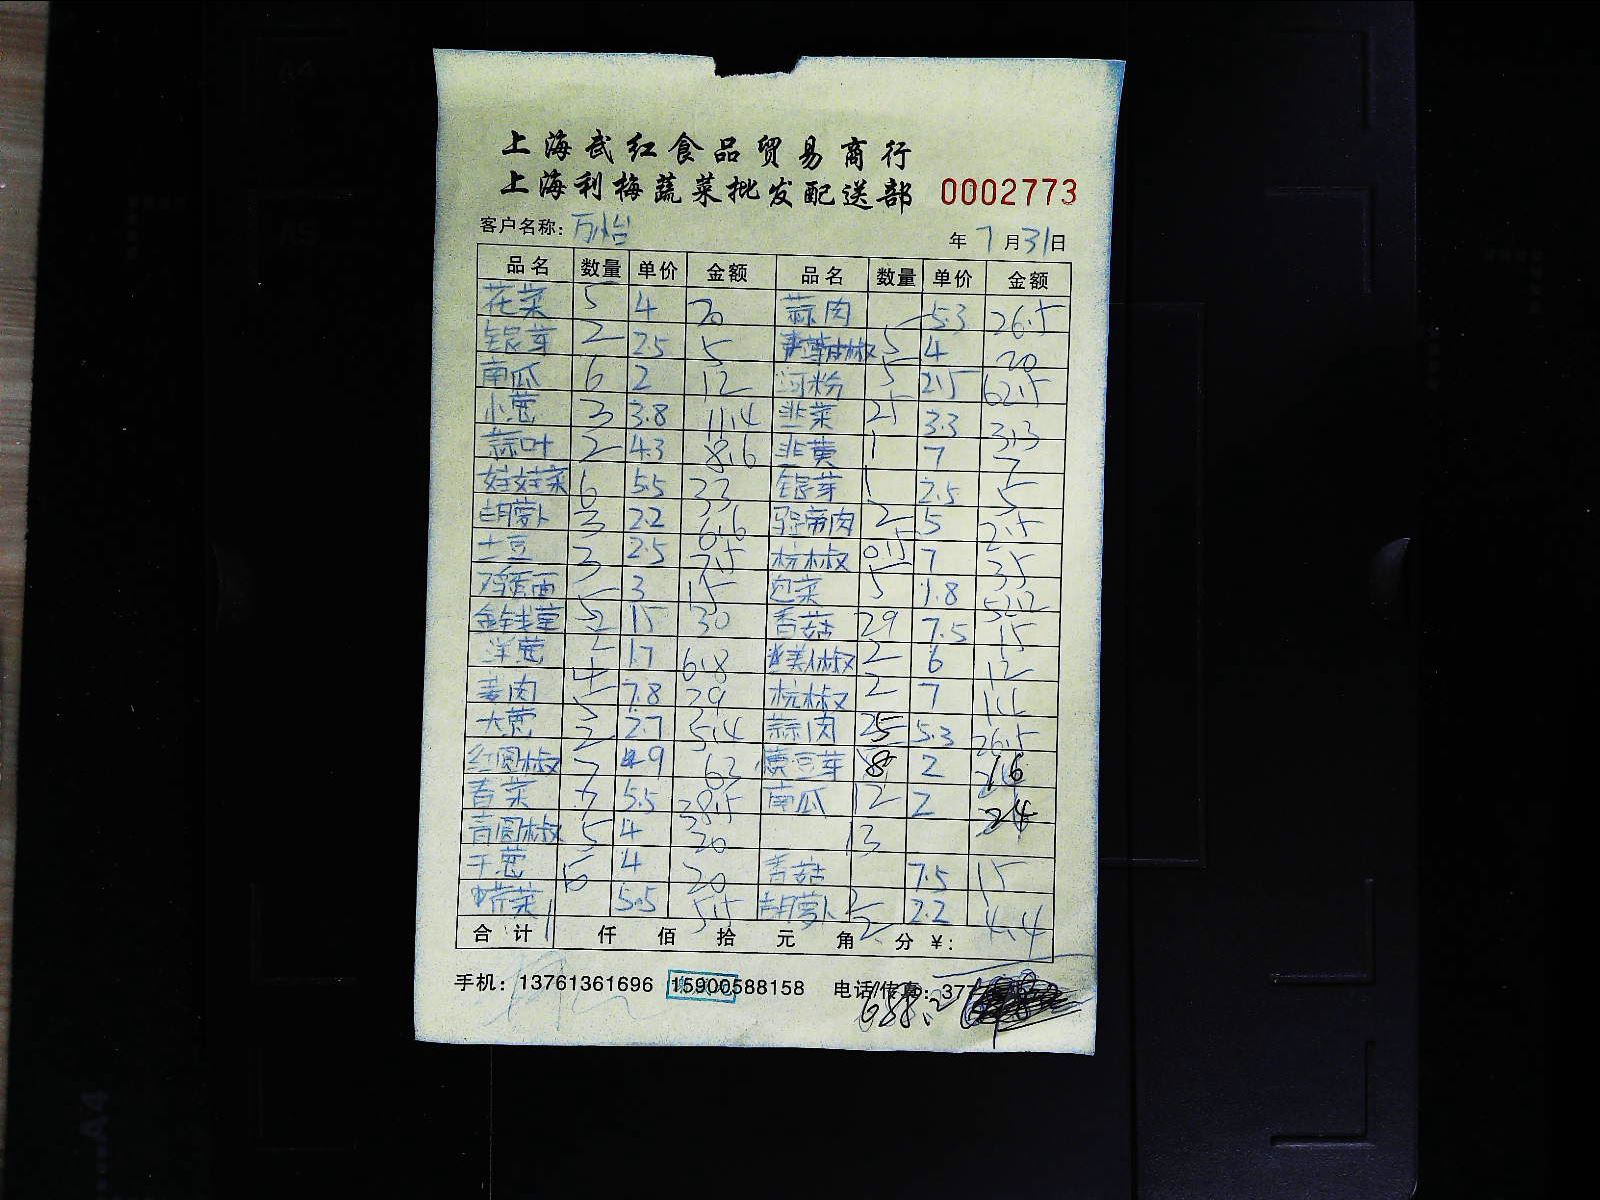 上海武红食品贸易商行
上海利梅蔬菜批发配送部 0002773
客户名称: 万怡 年 7 月 31 日
品名 数量 单价 金额 品名 数量 单价 金额
花菜 5 4 20 蒜肉 5.3 26.5
银芽 2 2.5 5 椒 5 4 20
南瓜 6 2 12 河粉 5 2.5 62.5
小葱 3 3.8 11.4 韭菜 25 3.3 3.3
蒜叶 2 4.3 8.6 韭黄 1 7 7
娃娃菜 6 5.5 33 银芽 1 2.5 5
胡萝卜 3 2.2 6.6 肉 2 5 2.5
土豆 3 2.5 7.5 杭椒 0.5 7 35
鸡蛋面 5 3 15 包菜 5 1.8 52.2
金钱草 2 15 30 香菇 29 7.5 15
洋葱 4 1.7 6.8 美人椒 2 6 12
姜肉 5 7.8 39 杭椒 2 7 14
大葱 2 2.7 5.4 蒜肉 25 5.3 26.5
红圆椒 7 9 63 黄豆芽 8 2 16
香菜 7 5.5 38.5 南瓜 12 2 24
青圆椒 5 4 20 13
干葱 5 4 20 香菇 7.5 15
菜 1 5.5 5.5 胡萝卜 2 2.2 4.4
合计 仟 佰 拾 元 角 分 ¥:
手机: 13761361696 15900588158 电话/传真: 377
688.2